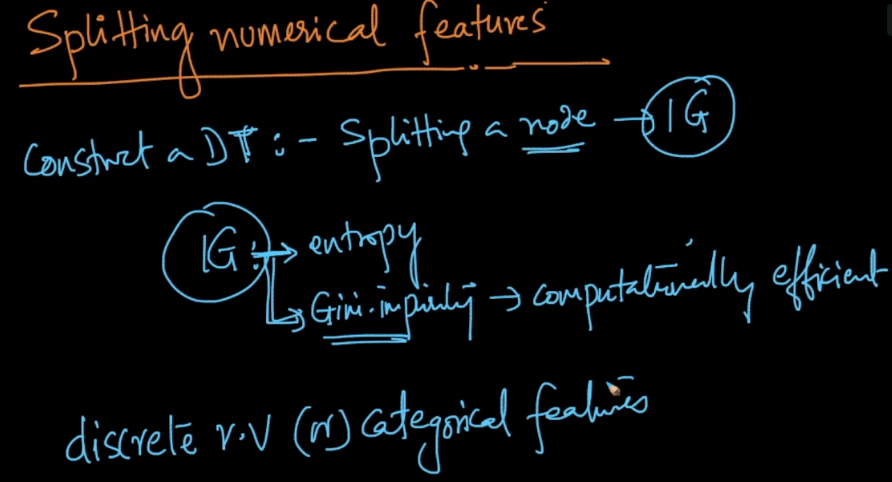 Splitting numerical features
Construct a DT :- Splitting a node → IG
IG : → entropy
→ Gini-impurity → computationally efficient
discrete r.v (or) categorical features